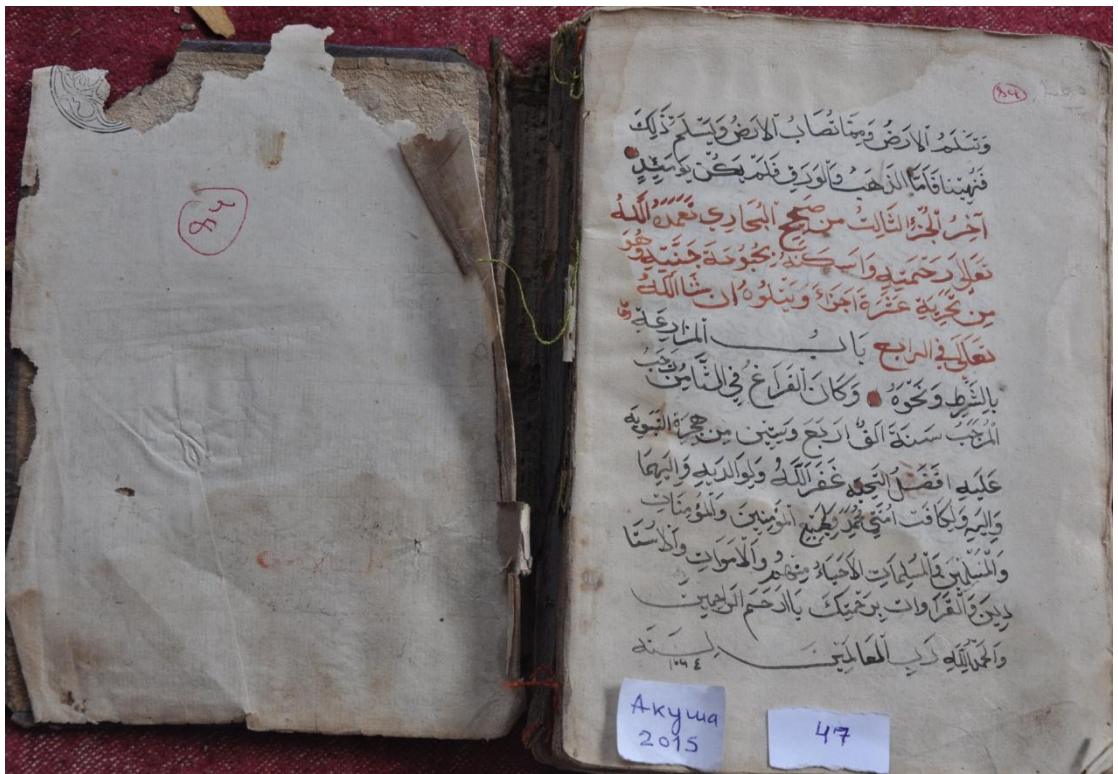 وَتَسْلَمُ الاَرْضُ وَمِمَّا تُصَابُ الاَرْضُ وَيَسْلَمُ ذَلِكَ
فَنُهِيْنَا فَاَمَّا الذَّهَبُ وَالْوَرِقُ فَلَمْ يَكُنْ يَوْمَئِذٍ
آخِرُ الْجُزْءِ الثَّالِث مِنْ صَحِيحِ الْبُخَارِي تَغَمَّدَهُ اللَّهُ
تَعَالَى بِرَحْمَتِهِ وَاَسْكَنَهُ بُحْبُوحَةَ جَنَّتِهِ وَهُوَ
مِنْ تَجْزِيَةِ عَشَرَة اَجْزَاء وَيَتْلُوهُ اِنْ شَا اللَّهُ
تَعَالَى فِي الرابع بَابُ الْمُزَارَعَةِ
بِالشَّرطِ وَنَحْوِهُ وَكَانَ الْفَرَاغُ فِي الثَّامِن رَجَبُ
الْمُرَجَّبُ سَنَةَ اَلْفُ اَرْبَعَ وَسِتِّين مِن هِجْرَة النَّبَوِيَّه
عَلَيْهِ اَفْضَلُ التَّحِيَّه غَفَرَ اللَّهُ وَلِوَالِدَيْهِ وَالَيْهِمَا
وَالَيْهِ وَلِكَافَّت اُمَّتِي مُحَمَّد وَلِجَمِيْعِ الْمُؤْمِنِينَ وَالْمُؤْمِنَات
وَالْمُسْلِمِيْنَ وَالْمُسْلِمَات الاَحْيَاءُ مِنْهُمْ وَالْاَمْوَات وَالْاُسْتَا
دِينَ وَالْقَرَاوَات بِرَحْمَتِكَ يَا اَرْحَمَ الرَّاحِمِين
وَالْحَمْدُ لِلَّهِ رَبِّ الْعَالَمِيْن سَنَه
١٠٦٤
Акуша
2015
47